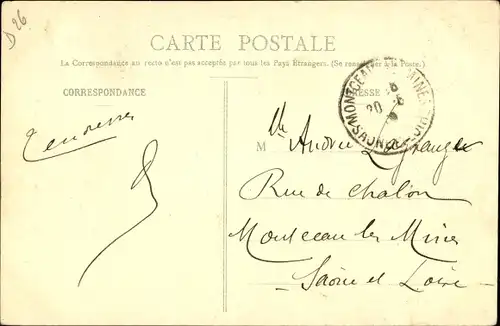 D 26
CARTE POSTALE
La Correspondance au recto n'est pas acceptée par tous les Pays Étrangers. (Se renseigner à la Poste)
CORRESPONDANCE
ADRESSE
MONTCEAU-LES-MINES
SAONE-ET-LOIRE
20
Tendresses
Mlle Andrée Lagrange
Rue de Chalon
Montceau les Mines
Saône et Loire